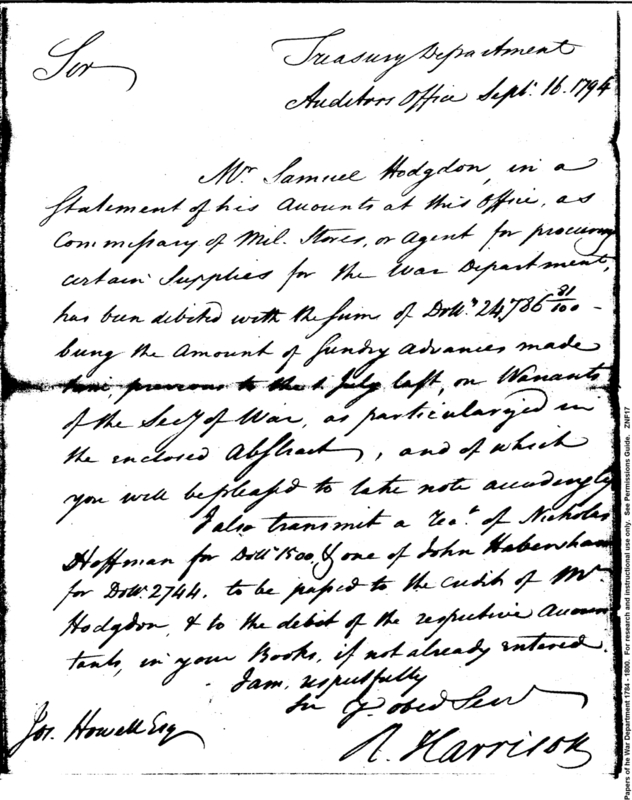 Sir
Treasury Department
Auditors Office Septr. 16. 1794
Mr. Samuel Hodgdon, in a
Statement of his Accounts at this Office, as
Commissary of Mil. Stores, or Agent for procuring
certain Supplies for the War Department,
has been debited with the Sum of Dolls. 24,786 81/100 -
being the Amount of Sundry advances made
him, previous to the 1. July last, on Warrants
of the Secy. of War, as particularized in
the enclosed Abstract, and of which
you will be pleased to take note accordingly
I also transmit a rect. of Nicholas
Hoffman for Dolls. 1500, & one of John Habersham
for Dolls. 2744. to be passed to the credit of Mr.
Hodgdon, & to the debit of the respective Accoun
tants, in your Books, if not already entered.
I am, respectfully
Sir Yr. obed Serv
R. Harrison
Jos. Howell Esq
Papers of he War Department 1784 - 1800. For research and instructional use only. See Permissions Guide. ZNF17